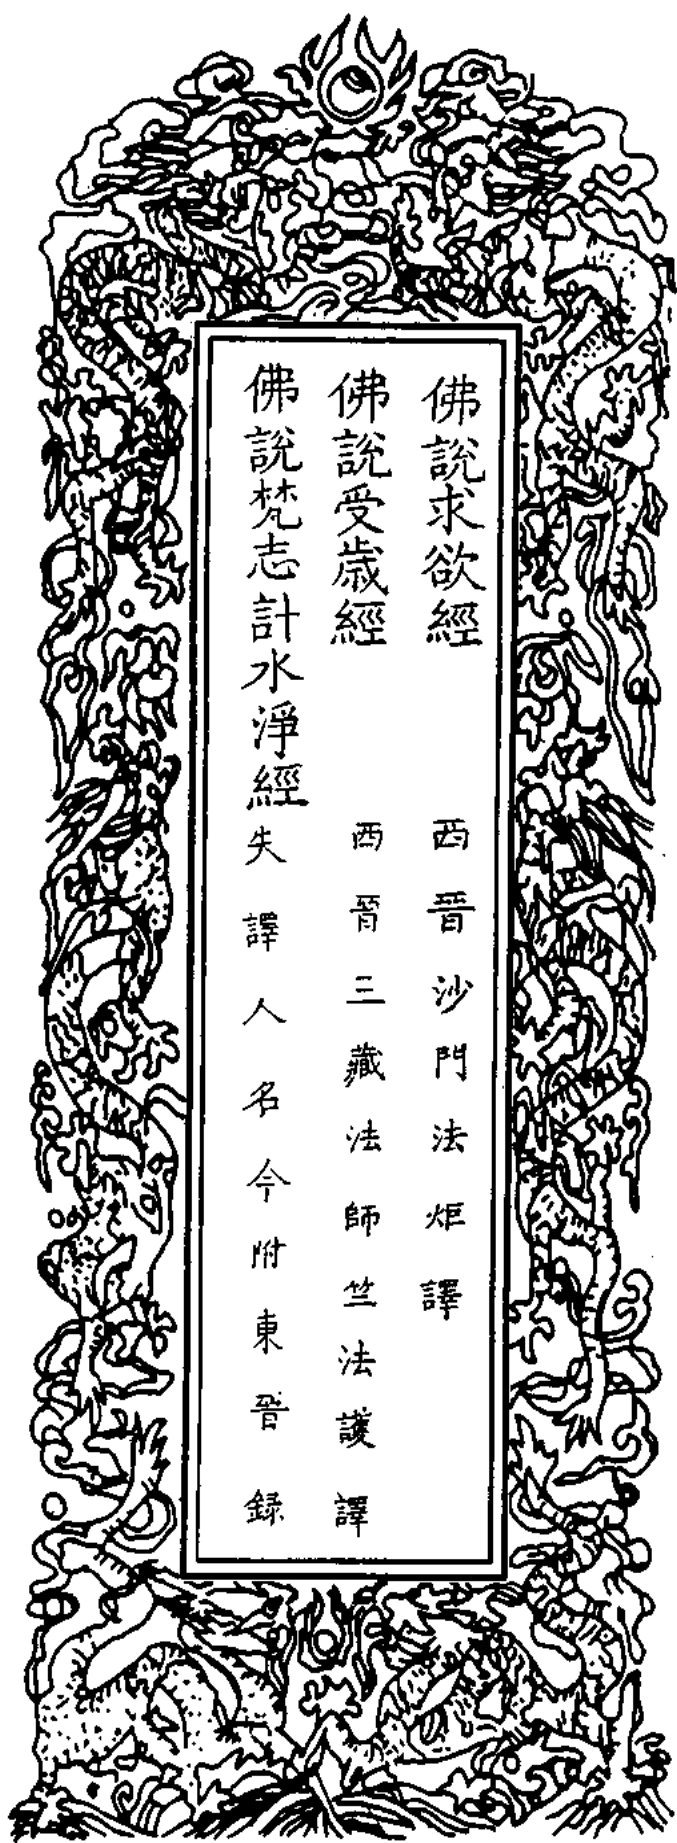 佛說求欲經 西晉沙門法炬譯
佛說受歳經 西晉三藏法師竺法護譯
佛說梵志計水淨經 失譯人名今附東晉錄